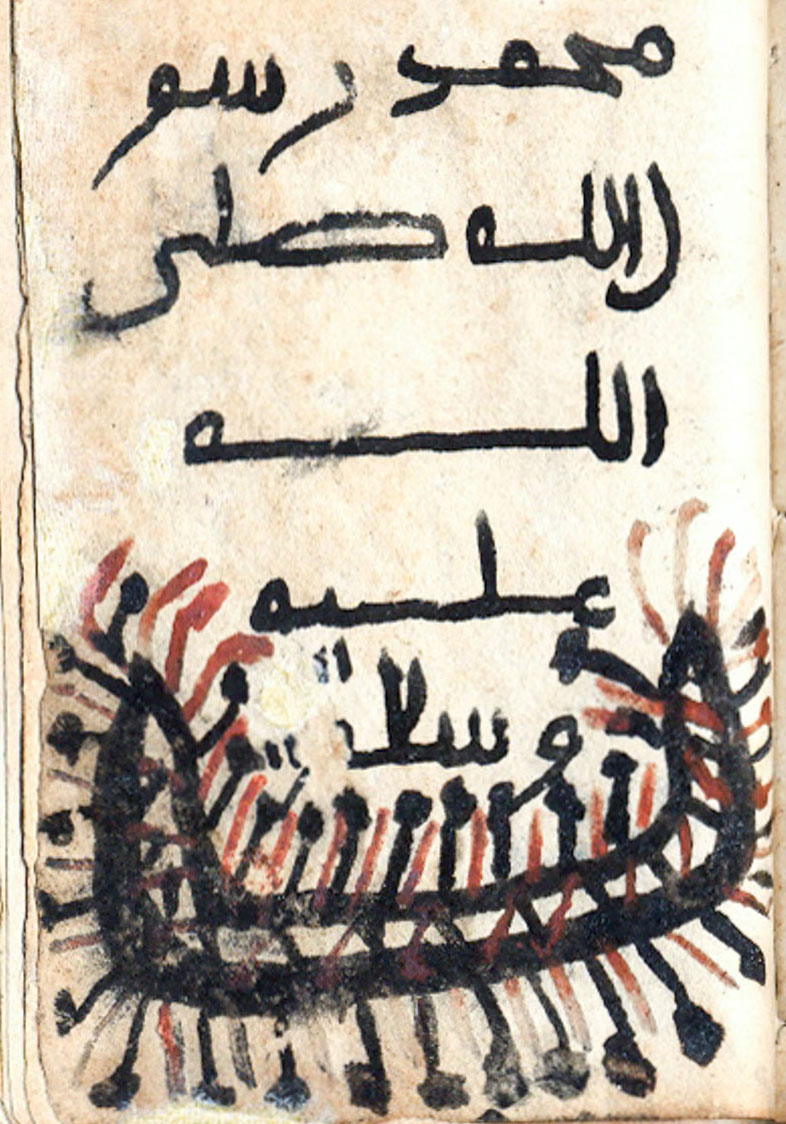 محمد رسو
ل الله صلى
الله
عليه